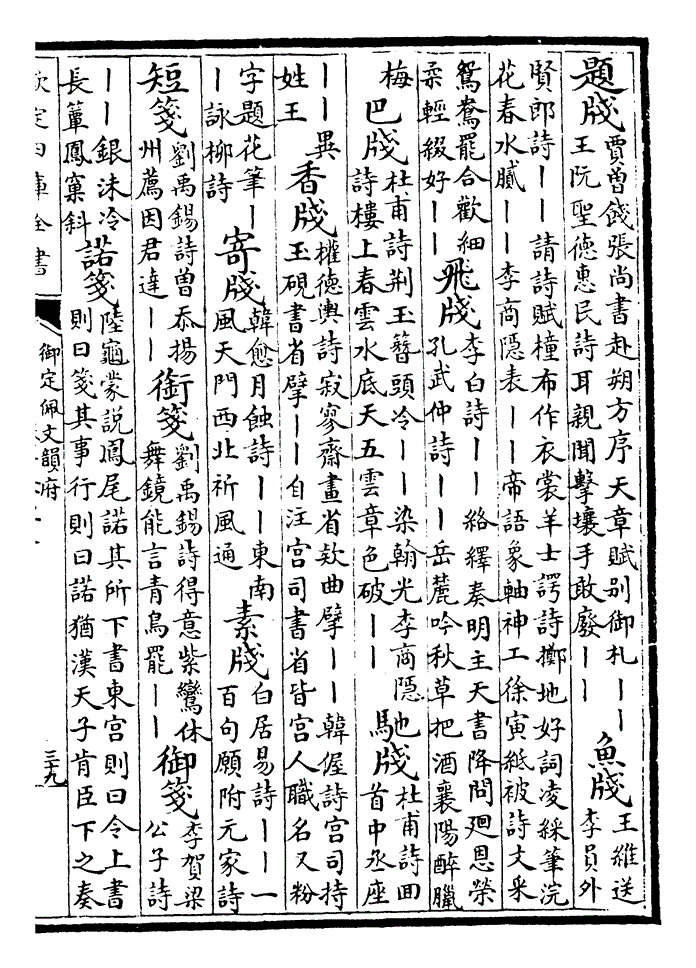 題牋
賈曾餞張尚書赴朔方序天章賦别御札丨丨
王阮聖德惠民詩耳親聞擊壤手敢廢丨丨
魚牋
王維送
李員外
賢郎詩丨丨請詩賦橦布作衣裳羊士諤詩擲地好詞凌綵筆浣
花春水膩丨丨李商隱表丨丨帝語象軸神工徐寅紙被詩文采
鴛鴦罷合歡細
柔輕綴好丨丨
飛牋
李白詩丨丨絡繹奏明主天書降問廻恩榮
孔武仲詩丨丨岳麓吟秋草把酒襄陽醉臘
梅
巴牋
杜甫詩荆玉簪頭冷丨丨染翰光李商隱
詩樓上春雲水底天五雲章色破丨丨
馳牋
杜甫詩回
首中丞座
丨丨異
姓王
香牋
權德輿詩寂寥齋畫省欵曲擘丨丨韓偓詩宫司持
玉硯書省擘丨丨自注宫司書省皆宫人職名又粉
字題花筆丨
丨詠柳詩
寄牋
韓愈月蝕詩丨丨東南
風天門西北祈風通
素牋
白居易詩丨丨一
百句願附元家詩
短箋
劉禹錫詩曾忝揚
州薦因君達丨丨
銜箋
劉禹錫詩得意紫鸞休
舞鏡能言青鳥罷丨丨
御箋
李賀梁
公子詩
丨丨銀沫冷
長簟鳳窠斜
諾箋
陸龜蒙説鳳尾諾其所下書東宫則曰令上書
則曰箋其事行則曰諾猶漢天子肯臣下之奏
欽定四庫全書
御定佩文韻府
三九